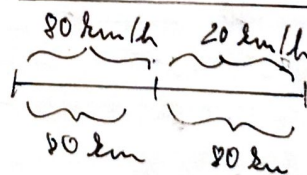 80 km/h 20 km/h
80 km 80 km